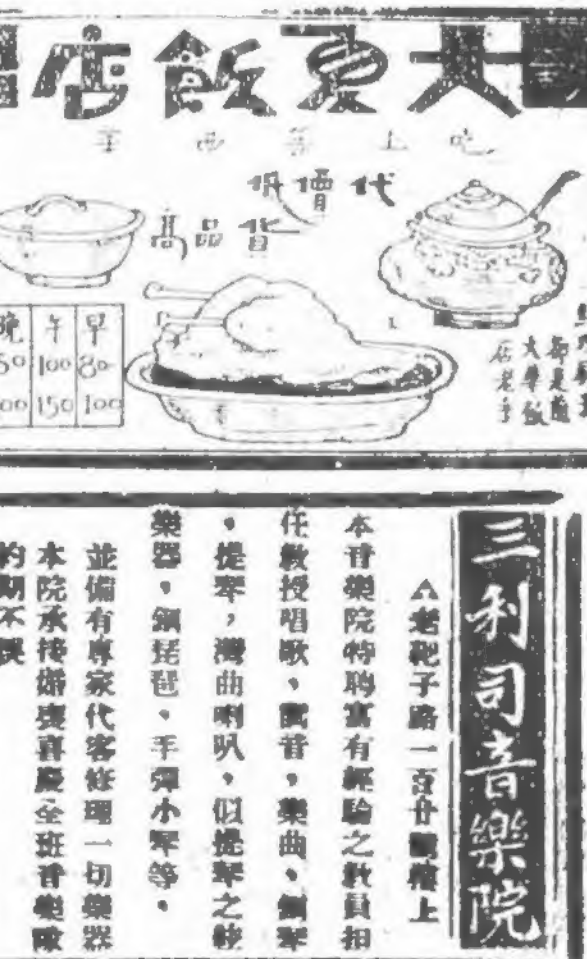 大夏飯店
吃上等西
代價低
貨品高
早 80 100
午 100 150
晚
都是
大華飯
店老手
三利司音樂院
△老靶子路一百廿號樓上
本音樂院特聘富有經驗之教員担
任教授唱歌，音，樂曲，鋼琴
，提琴，灣曲喇叭，似提琴之
樂器，鋼琵琶，手彈小琴等。
並備有專家代客修理一切樂器
本院承接婚喪喜慶全班音樂隊
約期不誤